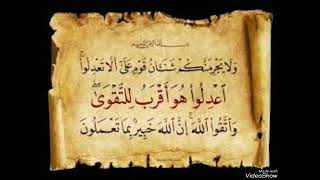 وَلَا يَجْرِمَنَّكُمْ شَنَآنُ قَوْمٍ عَلَىٰ أَلَّا تَعْدِلُوا
اعْدِلُوا هُوَ أَقْرَبُ لِلتَّقْوَىٰ
وَاتَّقُوا اللَّهَ إِنَّ اللَّهَ خَبِيرٌ بِمَا تَعْمَلُونَ
Made With
VideoShow